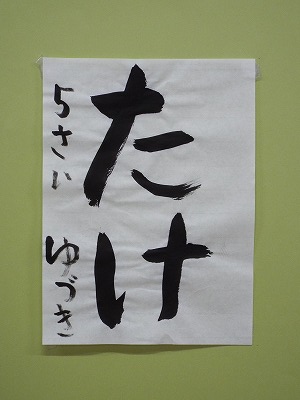 たけ
5さい ゆづき